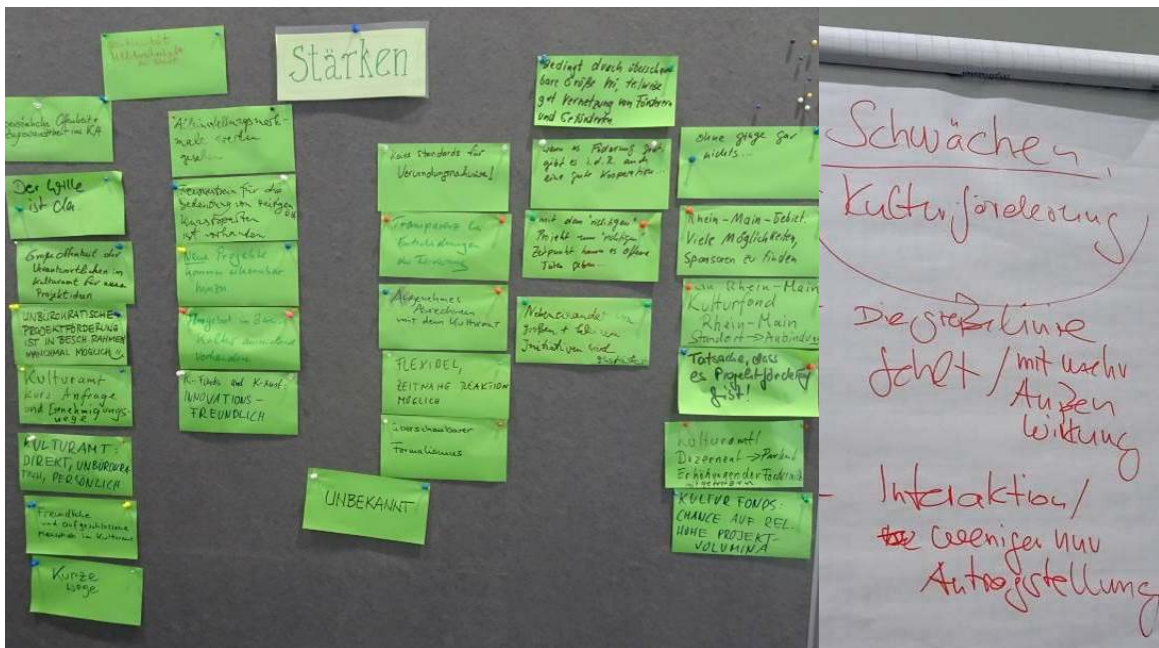 Stärken
persönliche
im KA
Der Wille
ist da.
Große Offenheit der
Verantwortlichen im
Kulturamt für neue
Projektideen
UNBÜROKRATISCHE
PROJEKTFÖRDERUNG
IST IN BESCH. RAHMEN
MANCHMAL MÖGLICH
Kulturamt
kurz Anfrage
und Genehmigungs-
wege
KULTURAMT:
DIREKT, UNBÜROKRA-
TISCH, PERSÖNLICH
Freundliche
und aufgeschlossene
Menschen im Kulturamt
Kurze
Wege
werden
gesehen
für die
Bedeutung von
ist vorhanden
Neue Projekte
kommen
hinzu
Angebot
Kultur
vorhanden
K-Fonds und K-Amt:
INNOVATIONS-
FREUNDLICH
Klare Standards für
Verwendungsnachweise!
Transparenz bei
Entscheidungen
der Förderung
Angenehmes
Abrechnen
mit dem Kulturamt
FLEXIBEL,
ZEITNAHE REAKTION
MÖGLICH
überschaubarer
Formalismus
UNBEKANNT
Bedingt durch überschau-
bare Größe hier, teilweise
gut Vernetzung von Förderern
und Geförderten
wenn es Förderung gibt,
gibt es i.d.R. auch
eine gute Kooperation...
mit dem "richtigen"
Projekt zum "richtigen"
Zeitpunkt kann es offene
Türen geben...
Nebeneinander von
großen + kleinen
Initiativen wird
ohne ginge gar
nichts...
Rhein-Main-Gebiet.
Viele Möglichkeiten,
Sponsoren zu finden
Rhein-Main
Kulturfond
Rhein-Main
Standort → Anbindung
Tatsache, dass
es Projektförderung
gibt!
Kulturamt/
Dezernent →
Erhöhungen der
KULTUR FONDS:
CHANCE AUF REL.
HOHE PROJEKT-
VOLUMINA
Schwächen
Kulturförderung
Die große Linie
fehlt / mit mehr
Außen
wirkung
- Interaktion/
weniger nur
Antragstellung